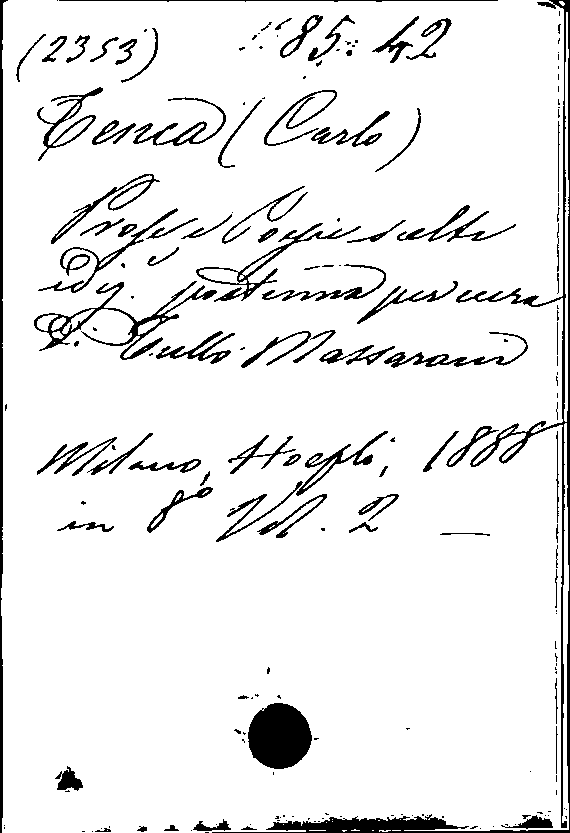 (2353) 85. 42
Tenca (Carlo)
Prose e Poesie scelte
ediz. postuma per cura
di Tullo Massarani
Milano, Hoepli, 1888
in 8° Vol. 2 —